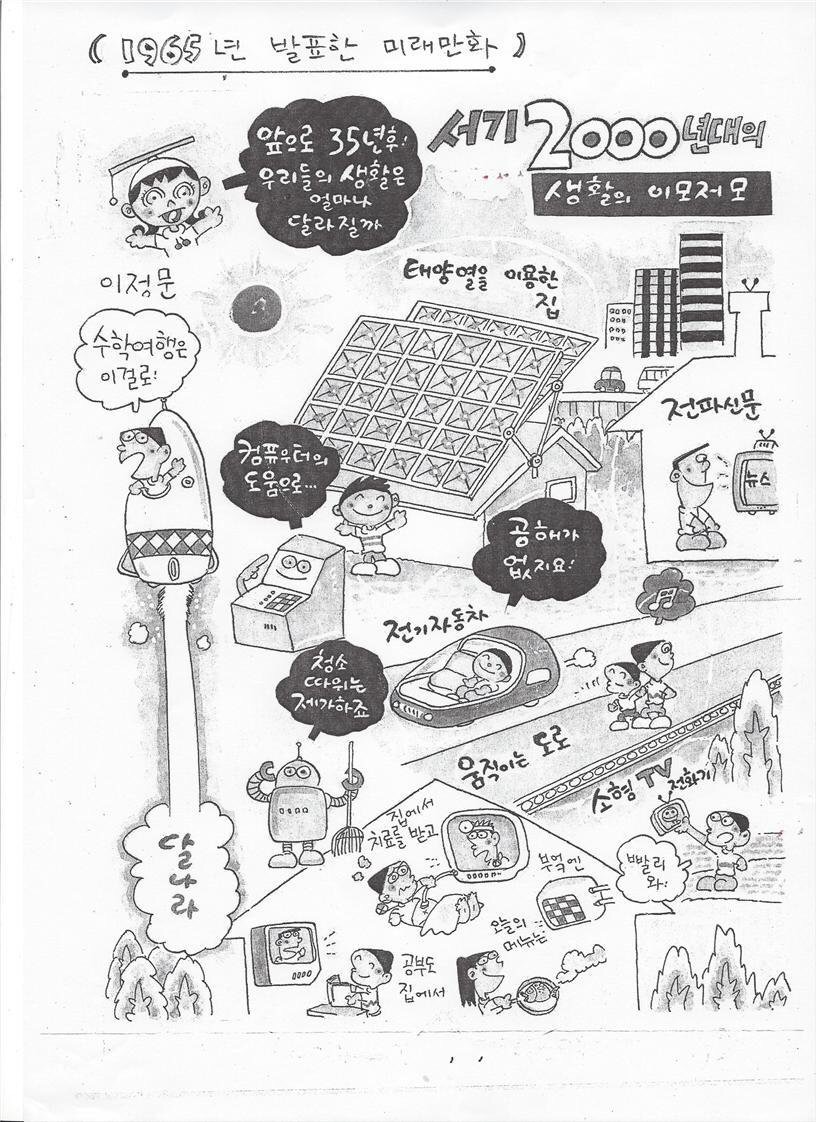 ( 1965년 발표한 미래만화 )
서기 2000년대의
생활의 이모저모
앞으로 35년후!
우리들의 생활은
얼마나
달라질까
이정문
태양열을 이용한
집
수학여행은
이걸로!
전파신문
뉴스
컴퓨우터의
도움으로...
공해가
없지요!
전기자동차
청소
따위는
제가하죠
움직이는 도로
소형 TV 전화기
빨리
와!
달나라
집에서
치료를 받고
부엌엔
오늘의
메뉴는
공부도
집에서